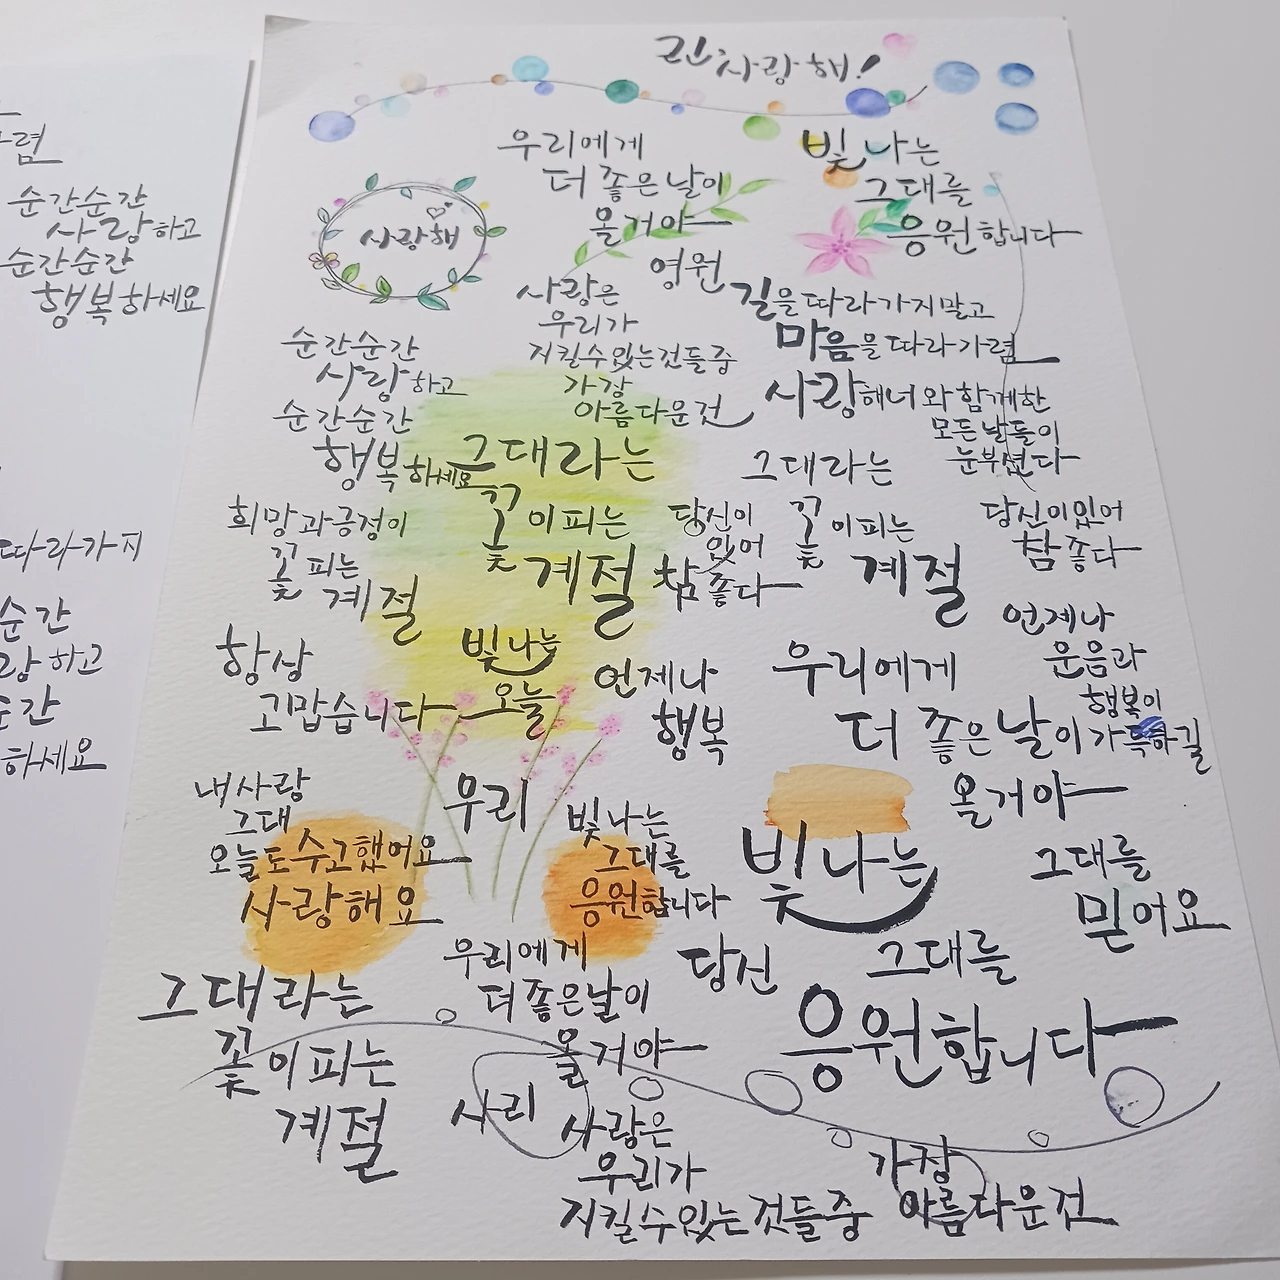 사랑해!
우리에게
더 좋은 날이
올거야
영원
빛나는
그대를
응원합니다
사랑해
사랑은
우리가
지킬수있는것들중
가장
아름다운건
길을따라가지말고
마음을따라가렴
사랑해너와함께한
모든날들이
눈부셨다
순간순간
사랑하고
순간순간
행복하세요
그대라는
꽃이피는
계절
당신이
있어
참좋다
그대라는
꽃이피는
계절
당신이있어
참좋다
희망과긍정이
꽃피는
계절
항상
고맙습니다
빛나는
오늘
언제나
행복
우리에게
더 좋은날이
올거야
언제나
웃음과
행복이
가득하길
내사랑
그대
오늘도수고했어요
사랑해요
우리
빛나는
그대를
응원합니다
빛나는
그대를
응원합니다
그대를
믿어요
당신
그대라는
꽃이피는
계절
우리에게
더좋은날이
올거야
사리
사랑은
우리가
지킬수있는것들중
가장
아름다운건
렴
순간순간
사랑하고
순간순간
행복하세요
따라가지
순간
랑하고
순간
하세요